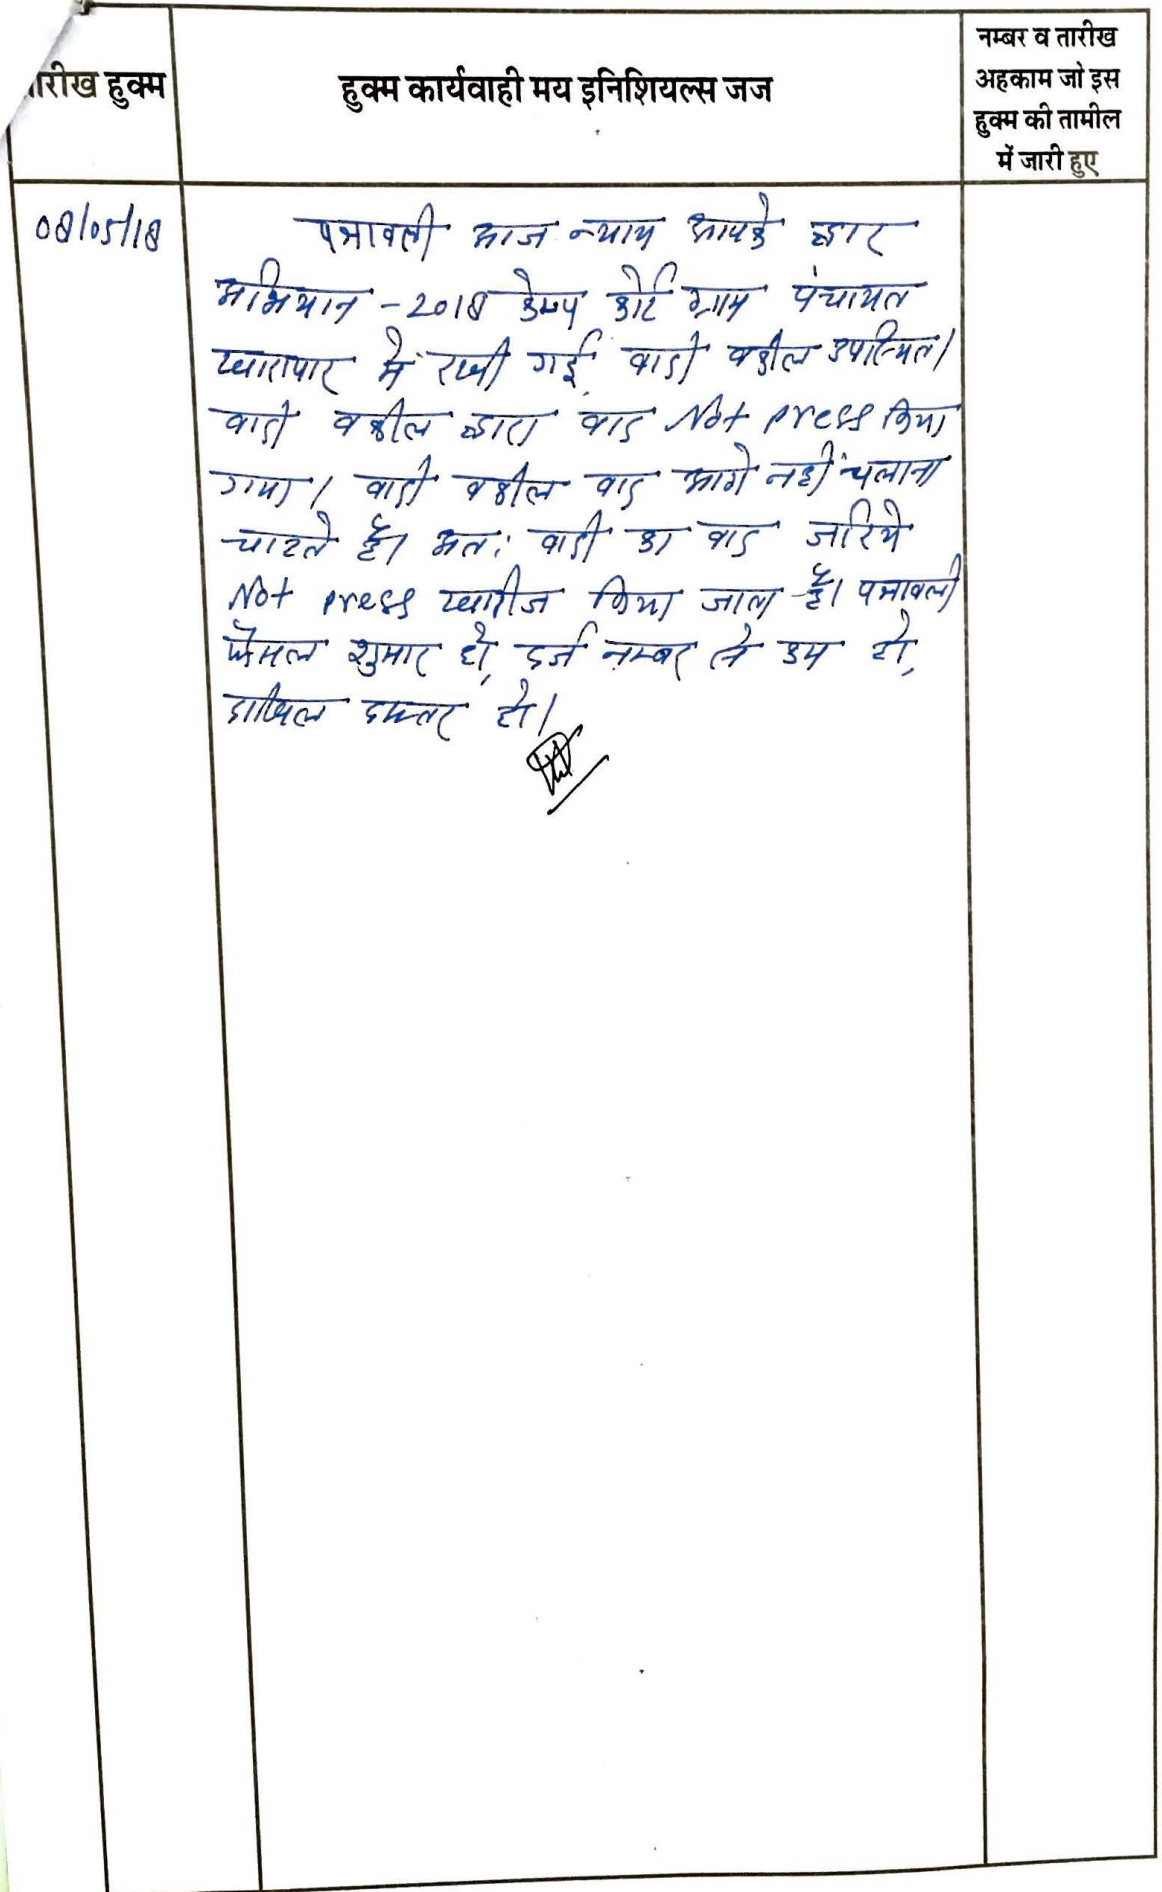 तारीख हुक्म
हुक्म कार्यवाही मय इनिशियल्स जज
नम्बर व तारीख
अहकाम जो इस
हुक्म की तामील
में जारी हुए
08/05/18
पत्रावली आज न्याय आपके द्वार
अभियान -2018 केम्प कोर्ट ग्राम पंचायत
खारापार में रखी गई, वादी वकील उपस्थित।
वादी वकील द्वारा वाद Not press किया
गया। वादी वकील वाद आगे नहीं चलाना
चाहते है। अतः वादी का वाद जरिये
Not press खारीज किया जाता है। पत्रावली
फैसल शुमार हो, दर्ज नम्बर से कम हो,
दाखिल दफ्तर हो।